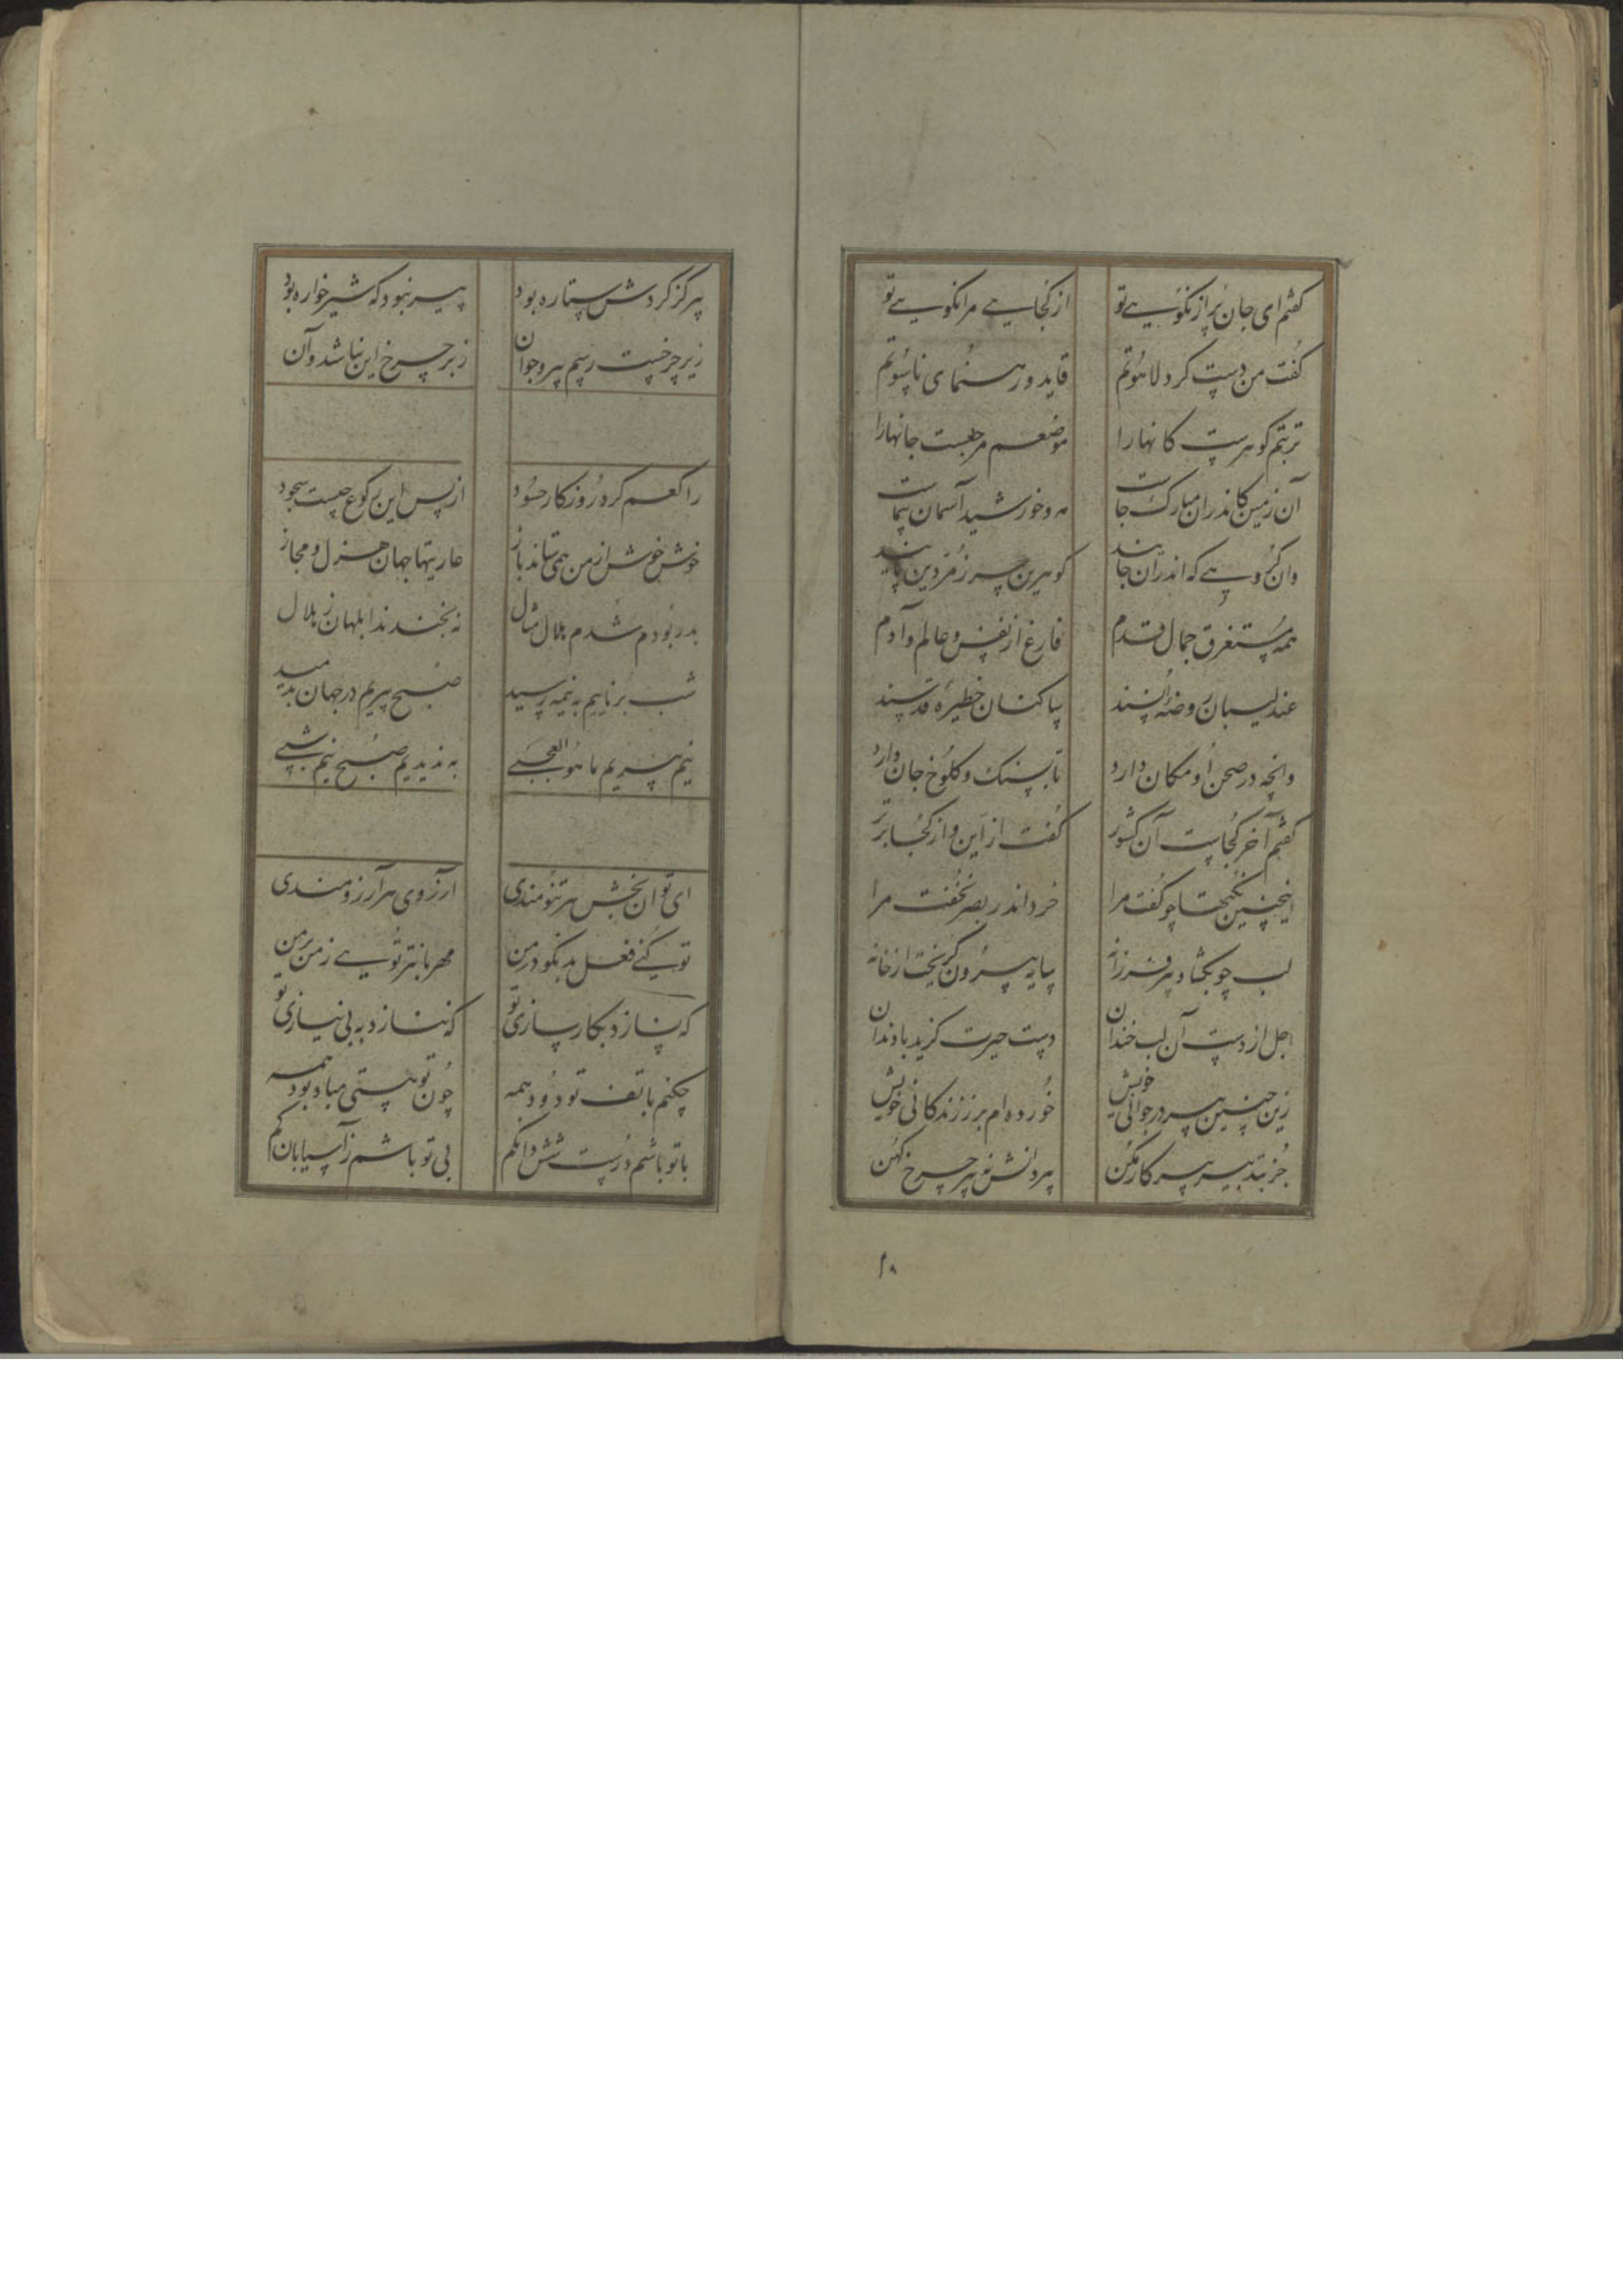 گفتم ای جان پر از نکویی تو از کجایی مرا نکویی تو
گفت من دست کرد لاهوتم قاید و رهنمای ناسوتم
تربتم گوهرست کانها را موضعم مرجعست جانها را
آن زمین کاندران مبارک جاست مه و خورشید آسمان پیماست
وان گروهی که اندر آن جایند گوهرین چهر زمردین پایند
همه مستغرق جمال قدم فارغ از نفس و عالم و آدم
عندلیبان روضه انسند ساکنان خطیره قدسند
وانچه در صحن او مکان دارد تا بسنگ و کلوخ جان دارد
گفتم آخر کجاست آن کشور گفت از این و از کجا برتر
اینچنین نکتها چو گفت مرا خرد اندر بصر نخفت مرا
لب چو بگشاد پیر فرزانه سایه بیرون گریخت از خانه
اجل از دست آن لب خندان دست حیرت گزید با دندان
زین چنین پیر در جوانی خویش خورده ام بر ز زندگانی خویش
جز بتدبیر پیر کار مکن پیر دانش نه پیر چرخ کهن
۲۸
پیر کز گردش ستاره بود پیر نبود که شیرخواره بود
زیر چرخست رسم پیر و جوان زبر چرخ این نباشد و آن
راکعم کرد روزگار حسود از پس این رکوع چیست سجود
خوش خوش از من همی ستاند باز عاریتها جهان هزل و مجاز
بدر بودم شدم هلال مثال نه بخندند ابلهان ز هلال
شب برناییم به نیمه رسید صبح پیریم در جهان بدمید
نیم پیریم ما هو العجبی به ندیدیم صبح نیم شبی
ای توان بخش هر تنومندی آرزوی هر آرزومندی
تو کنی فعل بد نکو در من مهربانتر تویی ز من بر من
که بسازد بکارسازی تو که نسازد به بی نیازی تو
چکنم با تف تو دود همه چون تو هستی مباد بود همه
با تو باشم درست شش دانگم بی تو باشم ز آسیا بانگم